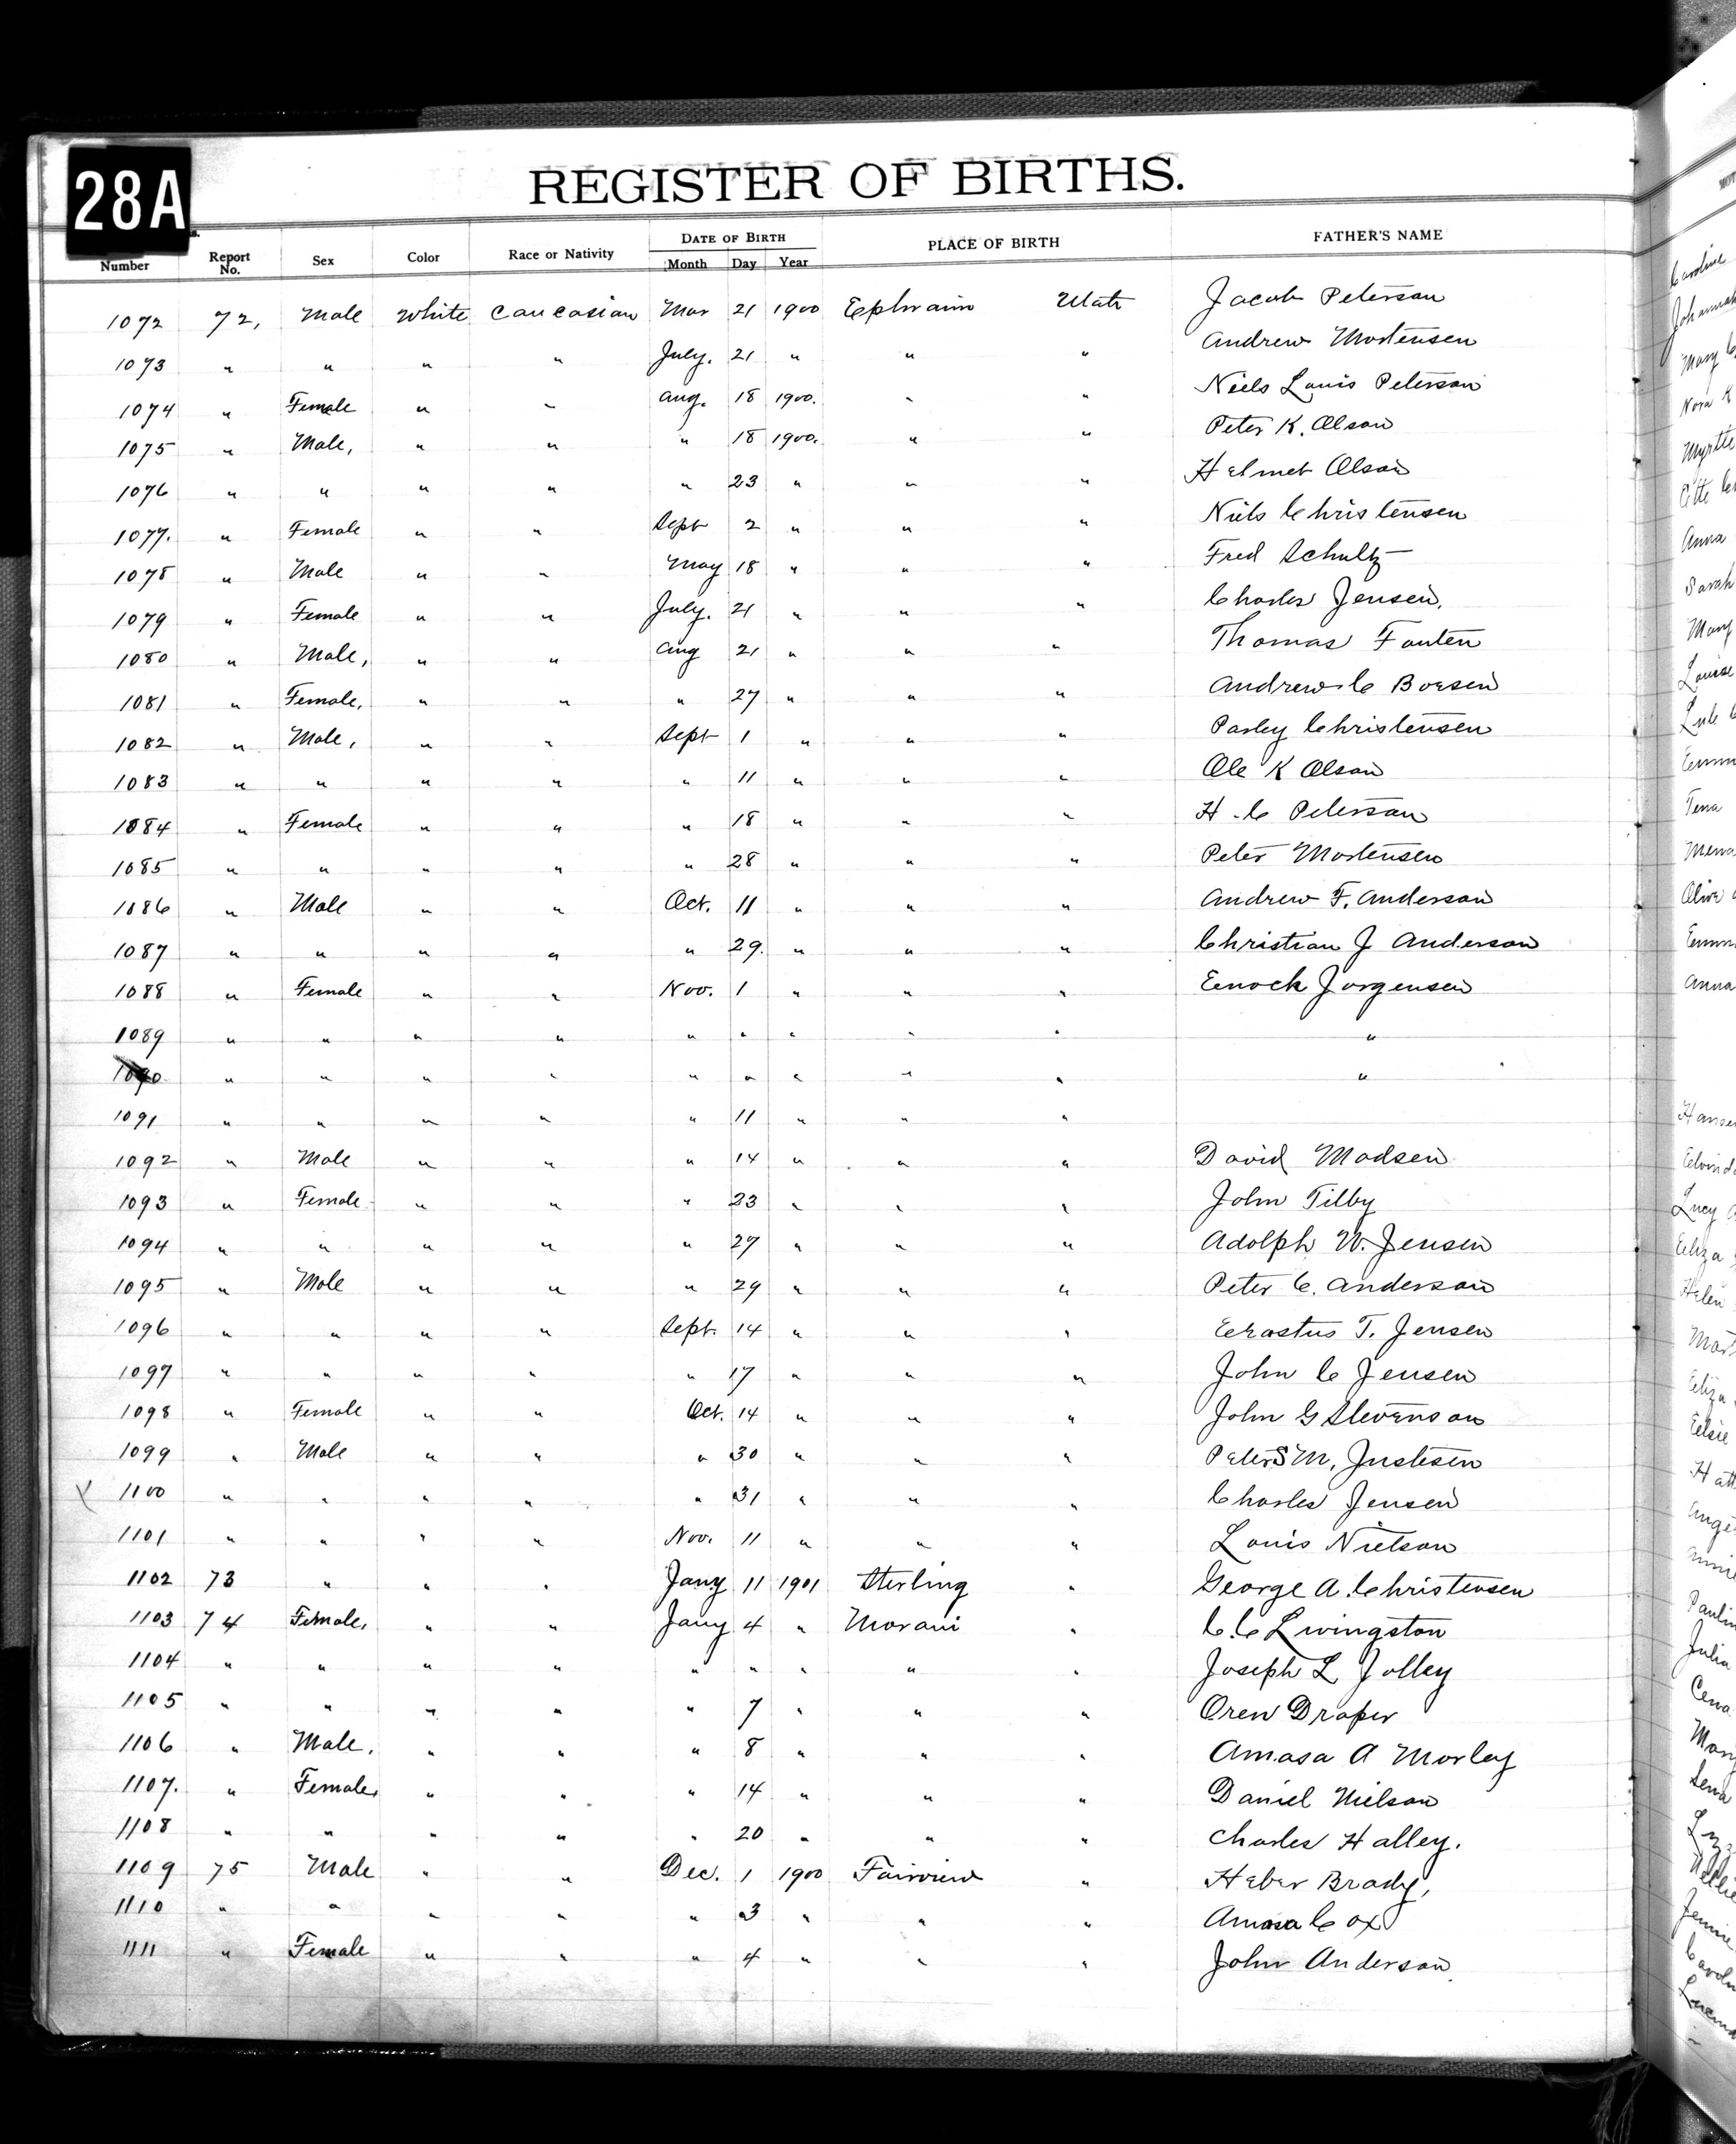 28A
REGISTER OF BIRTHS.
Number Report No. Sex Color Race or Nativity DATE OF BIRTH Month Day Year PLACE OF BIRTH FATHER'S NAME
1072 72, Male White Caucasian Mar 21 1900 Ephraim Utah Jacob Peterson
1073 " " " " July. 21 " " " Andrew Mortensen
1074 " Female " " Aug. 18 1900. " " Niels Louis Peterson
1075 " Male, " " " 18 1900. " " Peter K. Olson
1076 " " " " " 23 " " " Helmet Olson
1077. " Female " " Sept 2 " " " Niels Christensen
1078 " Male " " May 18 " " " Fred Schultz
1079 " Female " " July. 21 " " " Charles Jensen.
1080 " Male, " " Aug 21 " " " Thomas Fonten
1081 " Female, " " " 27 " " " Andrew C Boesen
1082 " Male, " " Sept 1 " " " Parley Christensen
1083 " " " " " 11 " " " Ole K Olson
1084 " Female " " " 18 " " " H. C Peterson
1085 " " " " " 28 " " " Peter Mortensen
1086 " Male " " Oct. 11 " " " Andrew F. Anderson
1087 " " " " " 29. " " " Christian J Anderson
1088 " Female " " Nov. 1 " " " Enock Jorgensen
1089 " " " " " " " " " "
1090 " " " " " " " " " "
1091 " " " " " 11 " " "
1092 " Male " " " 14 " " " David Madsen
1093 " Female " " " 23 " " " John Tilby
1094 " " " " " 27 " " " Adolph W. Jensen
1095 " Male " " " 29 " " " Peter C. Anderson
1096 " " " " Sept. 14 " " " Erastus T. Jensen
1097 " " " " " 17 " " " John C Jensen
1098 " Female " " Oct. 14 " " " John G Stevenson
1099 " Male " " " 30 " " " Peter S M, Justesen
X 1100 " " " " " 31 " " " Charles Jensen
1101 " " " " Nov. 11 " " " Louis Nielson
1102 73 " " " Jany 11 1901 Sterling " George A. Christensen
1103 74 Female, " " Jany 4 " Moroni " C. C Livingston
1104 " " " " " " " " " Joseph L Jolley
1105 " " " " " 7 " " " Oren Draper
1106 " Male, " " " 8 " " " Amasa A Morley
1107. " Female, " " " 14 " " " Daniel Nielson
1108 " " " " " 20 " " " Charles Halley.
1109 75 Male " " Dec. 1 1900 Fairview " Heber Brady,
1110 " " " " " 3 " " " Amasa Cox
1111 " Female " " " 4 " " " John Anderson
Caroline
Mary
Nora
Myrtle
Anna
Sarah
Mary
Louise
Tena
Anna
Lucy
Eliza
Helen
Eliza
Elsie
Julia